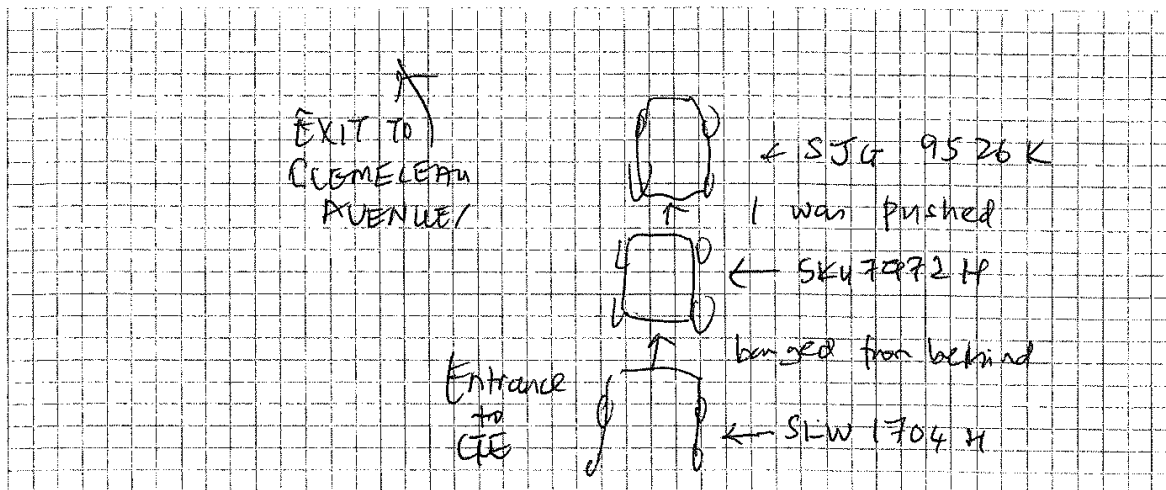 EXIT TO
CLEMELEAU
AVENUE/
← SJG 9526K
I was pushed
← SKU7972H
banged from behind
Entrance
to
CTE
← SLW 1704H